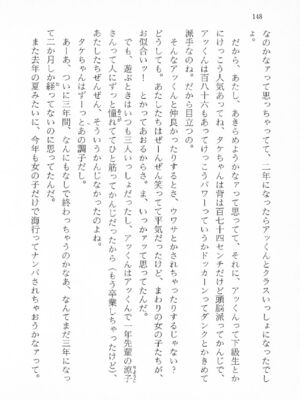 148
なのかなァって思っちゃってて、二年になったらアッくんとクラスいっしょになったしで
よ。
だから、あたし、あきらめようかなァって思って、それに、アッくんって下級生とか
にけっこう人気あってね、タケちゃんは背は百七十四センチだけど頭脳派ってかんじで、
アッくんは百八十六もあってけっこうパワーっていうかドッカーンってダンクとかきめて
派手なのね。だから目立つの。
そんなアッくんと仲良かったりするとき、ウワサとかされちゃったりするじゃない?
どうしても。あたしたちはぜーんぜん笑ってて平気だったけど、まわりの女の子たちが、
お似合いッ! とかってあおるからさ。ま、いっかァって思ってたんだ。
でも、遊ぶときはいつも三人いっしょだったし、アッくんはアッくんで一年先輩の涼子
さんって人にずっと憧れててひと筋ってかんじだったから(もう卒業しちゃったけど)、
あたしたちぜんぜん、そういうかんじなかったのよね。
タケちゃんはずーっとあの調子だし。
あーあ、ついに三年間、なんにもなしで終わっちゃうのかなあ、なんて、まだ三年になっ
て二か月しか経ってないのに思ってたんだ。
また去年の夏みたいに、今年も女の子だけで海行ってナンパされちゃおうかなァって。